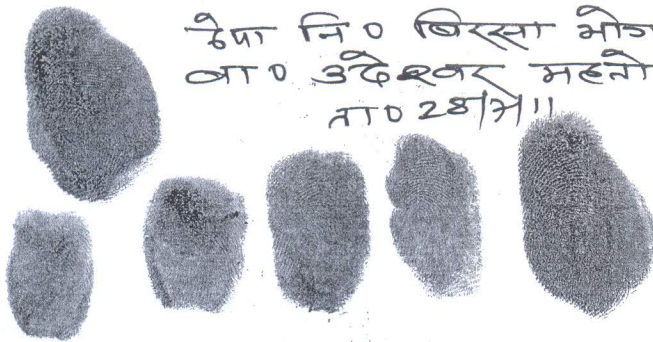 ठेपा नि० बिरसा भोग
बा० उदेश्वर महतो
ता० 28/7/11